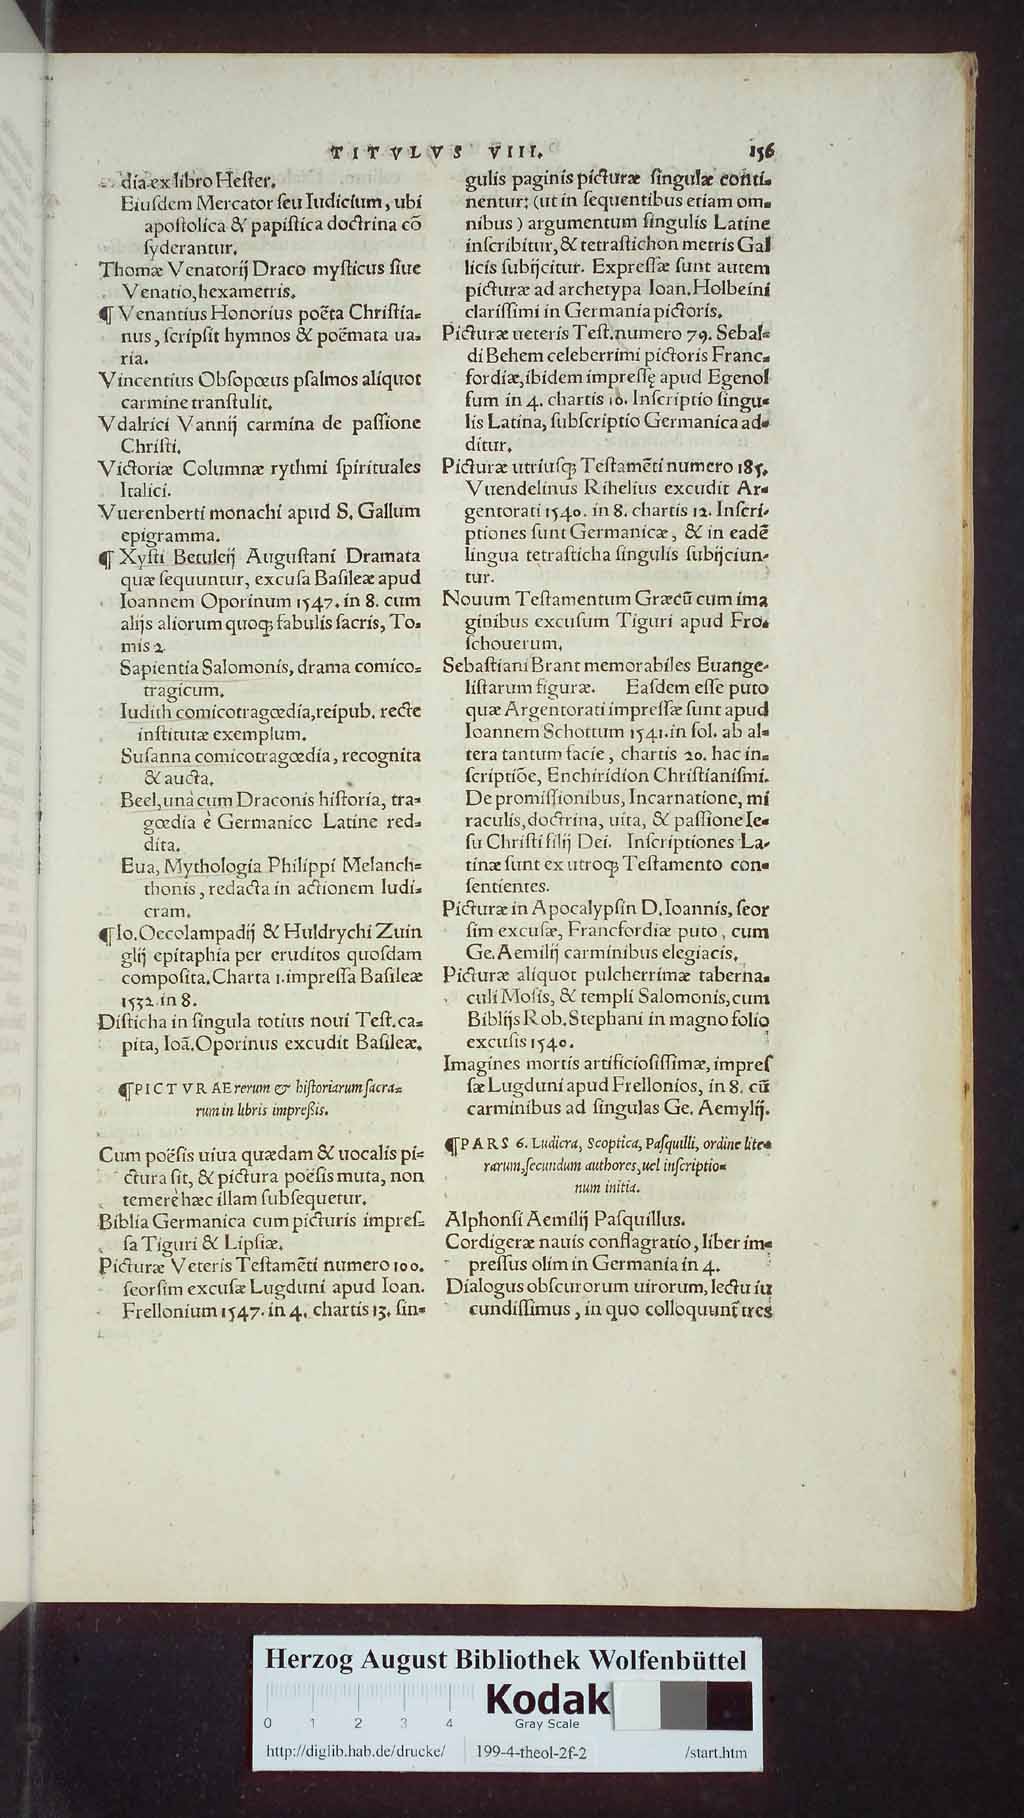 TITVLVS VIII. 156
dia ex libro Hester.
Eiusdem Mercator seu Iudicium, ubi
apostolica & papistica doctrina cō
syderantur.
Thomæ Venatorij Draco mysticus siue
Venatio, hexametris.
¶ Venantius Honorius poëta Christia=
nus, scripsit hymnos & poëmata ua=
ria.
Vincentius Obsopœus psalmos aliquot
carmine transtulit.
Vdalrici Vannij carmina de passione
Christi.
Victoriæ Columnæ rythmi spirituales
Italici.
Vuerenberti monachi apud S. Gallum
epigramma.
¶ Xysti Betuleij Augustani Dramata
quæ sequuntur, excusa Basileæ apud
Ioannem Oporinum 1547. in 8. cum
alijs aliorum quoq; fabulis sacris, To=
mis 2.
Sapientia Salomonis, drama comico=
tragicum.
Iudith comicotragœdia, reipub. recte
institutæ exemplum.
Susanna comicotragœdia, recognita
& aucta.
Beel, unà cum Draconis historia, tra=
gœdia è Germanico Latine red=
dita.
Eua, Mythologia Philippi Melanch=
thonis, redacta in actionem ludi=
cram.
¶ Io. Oecolampadij & Huldrychi Zuin
glij epitaphia per eruditos quosdam
composita. Charta 1. impressa Basileæ
1532. in 8.
Disticha in singula totius noui Test. ca=
pita, Ioā. Oporinus excudit Basileæ.
¶ PICTVRAE rerum & historiarum sacra=
rum in libris impreßis.
Cum poësis uiua quædam & uocalis pi=
ctura sit, & pictura poësis muta, non
temerè hæc illam subsequetur.
Biblia Germanica cum picturis impres=
sa Tiguri & Lipsiæ.
Picturæ Veteris Testamēti numero 100.
seorsim excusæ Lugduni apud Ioan.
Frellonium 1547. in 4. chartis 13. sin=
gulis paginis picturæ singulæ conti=
nentur: (ut in sequentibus etiam om=
nibus) argumentum singulis Latine
inscribitur, & tetrastichon metris Gal
licis subijcitur. Expressæ sunt autem
picturæ ad archetypa Ioan. Holbeini
clarissimi in Germania pictoris.
Picturæ ueteris Test. numero 79. Sebal=
di Behem celeberrimi pictoris Franc=
fordiæ, ibidem impressę apud Egenol
fum in 4. chartis 10. Inscriptio singu=
lis Latina, subscriptio Germanica ad=
ditur.
Picturæ utriusq; Testamēti numero 185.
Vuendelinus Rihelius excudit Ar=
gentorati 1540. in 8. chartis 12. Inscri=
ptiones sunt Germanicæ, & in eadē
lingua tetrasticha singulis subijciun=
tur.
Nouum Testamentum Græcū cum ima
ginibus excusum Tiguri apud Fro=
schouerum.
Sebastiani Brant memorabiles Euange=
listarum figuræ. Easdem esse puto
quæ Argentorati impressæ sunt apud
Ioannem Schottum 1541. in fol. ab al=
tera tantum facie, chartis 20. hac in=
scriptiōe, Enchiridion Christianismi.
De promissionibus, Incarnatione, mi
raculis, doctrina, uita, & passione Ie=
su Christi filij Dei. Inscriptiones La=
tinæ sunt ex utroq; Testamento con=
sentientes.
Picturæ in Apocalypsin D. Ioannis, seor
sim excusæ, Francfordiæ puto, cum
Ge. Aemilij carminibus elegiacis.
Picturæ aliquot pulcherrimæ taberna=
culi Mosis, & templi Salomonis, cum
Biblijs Rob. Stephani in magno folio
excusis 1540.
Imagines mortis artificiosissimæ, impres
sæ Lugduni apud Frellonios, in 8. cū
carminibus ad singulas Ge. Aemylij.
¶ PARS 6. Ludicra, Scoptica, Pasquilli, ordine lite=
rarum, secundum authores, uel inscriptio=
num initia.
Alphonsi Aemilij Pasquillus.
Cordigeræ nauis conflagratio, liber im=
pressus olim in Germania in 4.
Dialogus obscurorum uirorum, lectu iu
cundissimus, in quo colloquunt̃ tres
Herzog August Bibliothek Wolfenbüttel
Kodak
Gray Scale
0 1 2 3 4
http://diglib.hab.de/drucke/ 199-4-theol-2f-2 /start.htm